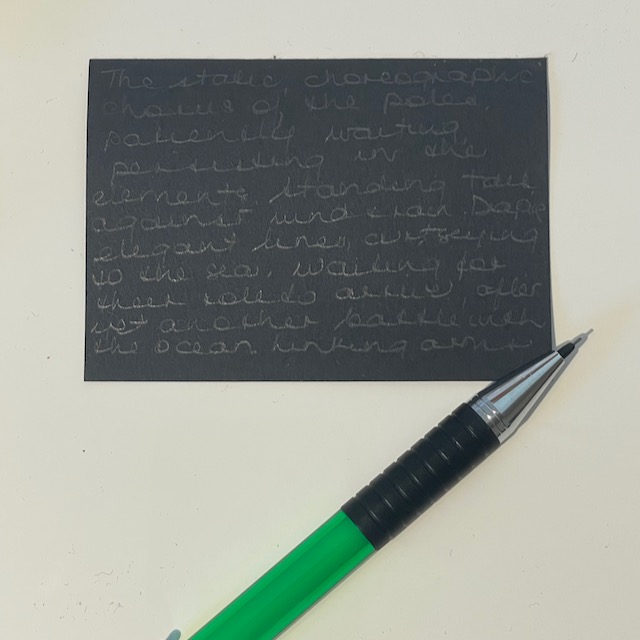 The static, choreographic
chorus of the poles.
patiently waiting
persisting in the
elements. Standing tall
against wind &
elegant lines
to the sea. Waiting for
their to arrive, after
yet another battle with
the ocean. linking arms